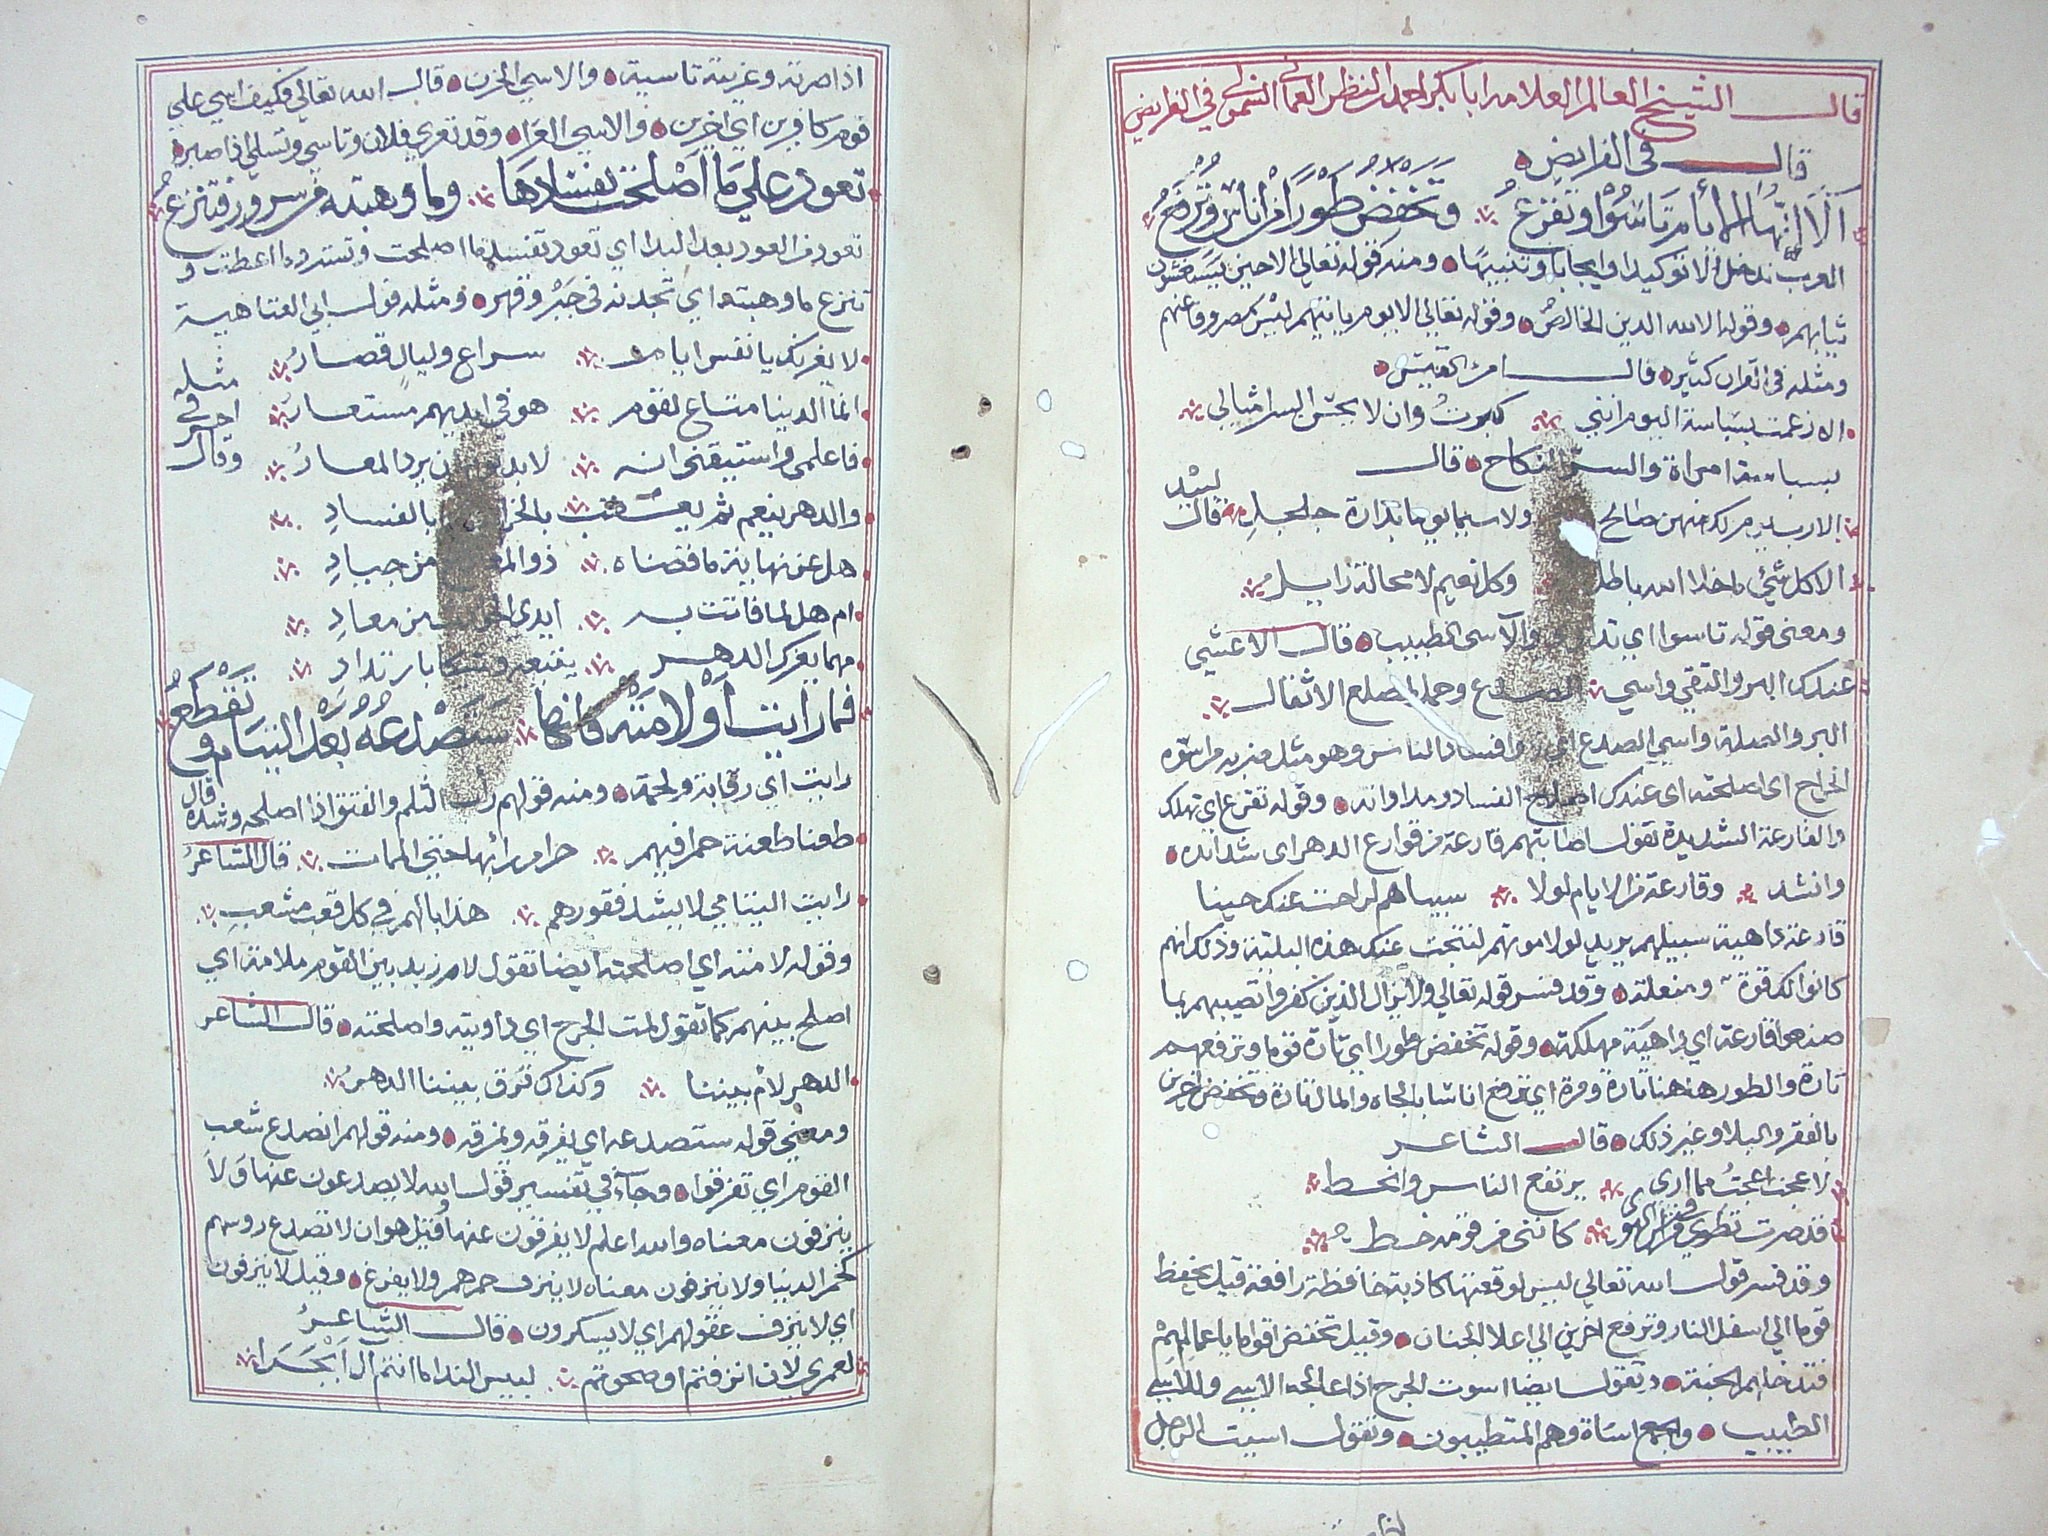 قال الشيخ العالم العلامة ابا بكر احمد بن النظر العماني السموئلي في الفرايض
قال في الفرايض
ألا انها الايام تاسوا وتقرع وتخفض طورا من اناس وترفع
العرب تدخل ألا توكيدا وايجابا وتنبيها ومنه قوله تعالى الا حين يستغشون
ثيابهم وقوله الا لله الدين الخالص وقوله تعالى الا يوم ياتيهم ليس مصروفا عنهم
ومثله في القران كثير قال امرؤ القيس
الا زعمت بسباسة اليوم انني كبرت وان لا يحسن السر امثالي
بسباسة امراة والسر النكاح قال
الا رب يوم لك منهن صالح ولا سيما يوما بدارة جلجل قال لبيد
الا كل شيء ما خلا الله باطل وكل نعيم لا محالة زايل
ومعنى قوله تاسوا اي تداوي والآسي الطبيب قال الاعشى
عندك البر والتقى واسى الصدع وحمل لمضلع الاثقال
البر والصلة واسي الصدع اي افساد الناس وهو مثل ضربه من اسوه
الجراح اي اصلحته اي عندك اصلاح الفساد ومداواته وقوله تقرع اي تهلك
والقارعة الشديدة تقول اصابتهم قارعة من قوارع الدهر اي شدائده
وانشد وقارعة من الايام لولا سبيلهم لراحت عنك حينا
قارعة داهية سبيلهم يريد لولا موتهم لنتجت عنك هذه البلية وذلك انهم
كانوا لك قوة ومنعة وقد فسر قوله تعالى ولا يزال الذين كفروا تصيبهم بما
صنعوا قارعة اي داهية مهلكة وقوله تخفض طورا اي تارة قوما وترفعهم
تارة والطور هاهنا تارة ومرة اي ترفع اناسا بالجاه والمال تارة وتخفض اخرين
بالفقر والبلاء وغير ذلك قال الشاعر
لا عجب اعجب مما ارى يرتفع الناس وانحط
قد صرت نطوي كانني من فوقه خط
وقد فسر قول الله تعالى ليس لوقعتها كاذبة خافظة رافعة قيل يخفظ
قوما الى اسفل النار وترفع اخرين الى اعلا الجنان وقيل تخفض اقواما باعمالهم
فتدخلهم الجنة وتقول ايضا اسوت الجرح اذا عالجه الاسي والآسي
الطبيب والجمع اساة وهم المتطببون وتقول اسيت الرجل
اذا صبرته وعزيته تاسية والاسى الحزن قال الله تعالى فكيف اسى على
قوم كافرين اي احزن والاسى العزا وقد تعزى فلان وتاسى وتسلى اذا صبر
تعود على ما اصلحت بفسادها وما وهبته من سرور فتنزع
تعود من العود بعد البدا اي تعود تفسد ما اصلحت وتسترد ما اعطت و
تنزع ما وهبته اي تجدنه في جبر وقهر ومثله قول ابي العتاهية
لا يغرنك يا نفس ايامـ سراع وليال قصار
انما الدنيا متاع لقوم هو في ايديهم مستعار
فاعلمي واستيقني انه لابد من ان يرد المعار
مثله في اخرى وقال
والدهر ينعم ثم يعقب بالفساد
هل عن نهاية ما قضاه ذو من حياد
ام هل لما فاتت به ايدي من معاد
مهما يعرك الدهر يقتبعه وشكا بارتداد
فما رابت او لامته فانها ستصدعه بعد التيام وتقطع
رابت اي رقابة ولحمة ومنه قولهم رب الثلم والفتق اذا اصلحه وشده قال
طعنا طعنة حمرا فيهم حرام رأبها حتى الممات قال الشاعر
رايت اليتامى لا يشد فقورهم هدايا لهم في كل قعب مشعب
وقوله لامته اي اصلحته ايضا تقول لام زيد بين القوم ملامة اي
اصلح بينهم كما تقول لمت الجرح اي داويته واصلحته قال الشاعر
الدهر لأم بيننا وكذاك فرق بيننا الدهر
ومعنى قوله ستصدعه اي يفرقه ويمزقه ومنه قولهم انصدع شعب
القوم اي تفرقوا وجاء في تفسير قول الله لا يصدعون عنها ولا
ينزفون معناه والله اعلم لا يفرقون عنها وقيل هو ان لا تصدع روسهم
كخمر الدنيا ولا ينزفون معناه لا ينزف خمرهم ولا يفرغ وقيل لا ينزفون
اي لا ينزف عقولهم اي لا يسكرون قال الشاعر
لعمري لان انزفتم او صحوتم لبيس الندا ما انتم آل ابجرا